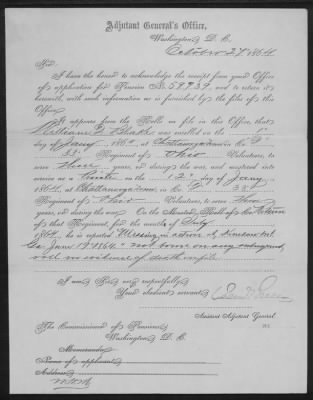 Adjutant General's Office,
Washington, D. C.
October 27, 1864
Sir:
I have the honor to acknowledge the receipt from your Office
of application for Pension No. 59939, and to return it
herewith, with such information as is furnished by the files of this
Office.
It appears from the Rolls on file in this Office, that
William was enrolled on the
day of Jany, 1864, at Chattanooga in Co.
Regiment of Ohio Volunteers, to
serve three years, or during the war, and mustered into
service as a Private on the 12" day of Jany,
1864, at Chattanooga in Co.
Regiment of Ohio Volunteers, to serve three
years, or during the war. On the Muster Roll of Co.
of that Regiment, for the months of
1864, he is reported Missing in action at
Ga. June 1864 not borne on any subsequent
roll no evidence of death on file
I am, Sir, very respectfully,
Your obedient servant,
Assistant Adjutant General
The Commissioner of Pensions,
Washington, D. C.
Memoranda:
Name of applicant,
Address,